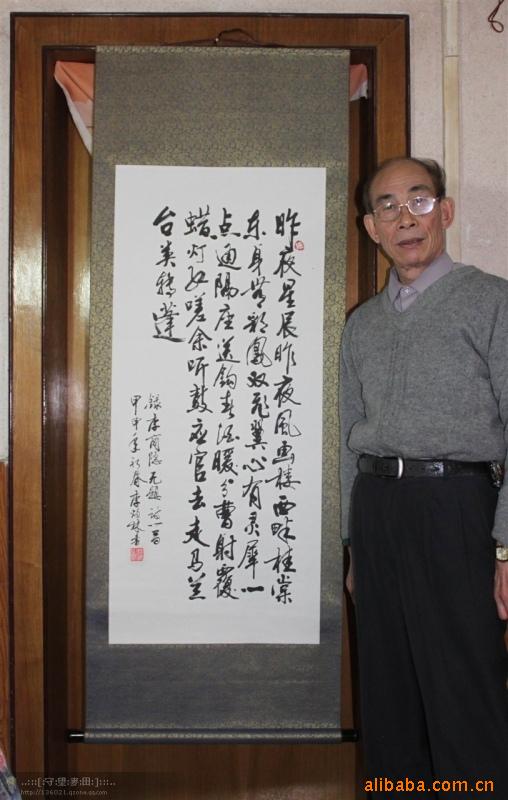 昨夜星辰昨夜风画楼西畔桂棠
东身无彩凤双飞翼心有灵犀一
点通隔座送钩春酒暖分曹射覆
蜡灯红嗟余听鼓应官去走马兰
台类转蓬
录李商隐无题诗一首
甲申年初春李
..:::[:守:望:麦:田:]:::..
http://136021.qzone.qq.com
alibaba.com.cn